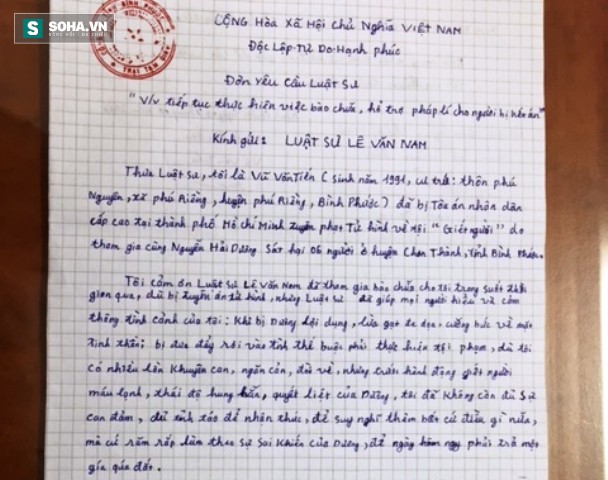 SOHA.VN
CỘNG Hòa XÃ HỘi CHủ NGHĩa VIỆT NAM
Độc Lập-Tự Do-Hạnh phúc
Đơn Yêu Cầu Luật Sư
"V/v tiếp tục thực hiện việc bào chữa, hỗ trợ pháp lí cho người bị kết án"
Kính gửi: LUẬT SƯ LÊ VĂN NAM
Thưa Luật sư, tôi là Vũ Văn Tiến ( sinh năm 1991, cư trú: thôn phú
Nguyên, xã phú Riềng, huyện phú Riềng, Bình Phước) đã bị Tòa án nhân dân
cấp cao tại thành phố Hồ Chí Minh tuyên phạt Tử hình về tội "Giết người" do
tham gia cùng Nguyễn Hải Dương sát hại 06 người ở huyện Chơn Thành, tỉnh Bình Phước.
Tôi cảm ơn Luật sư Lê Văn Nam đã tham gia bào chữa cho tôi trong suốt thời
gian qua, dù bị tuyên án tử hình, nhưng Luật sư đã giúp mọi người hiểu và cảm
thông tình cảnh của tôi: Khi bị Dương lợi dụng, lừa gạt đe dọa, cưỡng bức về mặt
tinh thần; bị đưa đẩy rơi vào tình thế buộc phải thực hiện tội phạm, dù tôi
có nhiều lần khuyên can, ngăn cản, đòi về, nhưng trước hành động giết người
máu lạnh, thái độ hung hãn, quyết liệt của Dương, tôi đã không còn đủ sự
can đảm, đủ tỉnh táo để nhận thức, để suy nghĩ thêm bất cứ điều gì nữa,
mà cứ răm rắp làm theo sự sai khiến của Dương, để ngày hôm nay phải trả một
giá quá đắt.